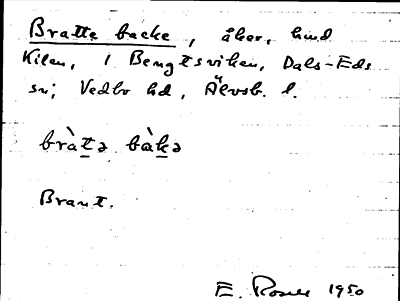 Bratte backe, åker, hmd
Kilen, i Bengtsviken, Dals-Eds
sn; Vedbo hd, Älvsb. l.
bràtə bàkə
Brant.
E. 1950